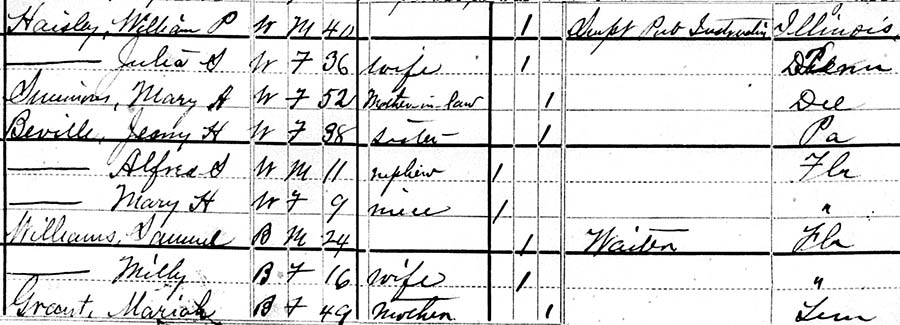 Haisley, William P W M 40 1 Supt Pub Instruction Illinois,
— Julia S W F 36 wife 1 Penn
Simmons, Mary A W F 52 Mother-in-law 1 Del
Beville, Jenny H W F 38 sister 1 Pa
— Alfred S W M 11 nephew 1 Fla
— Mary H W F 9 niece 1 "
Williams, Samuel B M 24 1 Waiter Fla
— Milly B F 16 wife 1 "
Grant, Mariah B F 49 Mother 1 Tenn